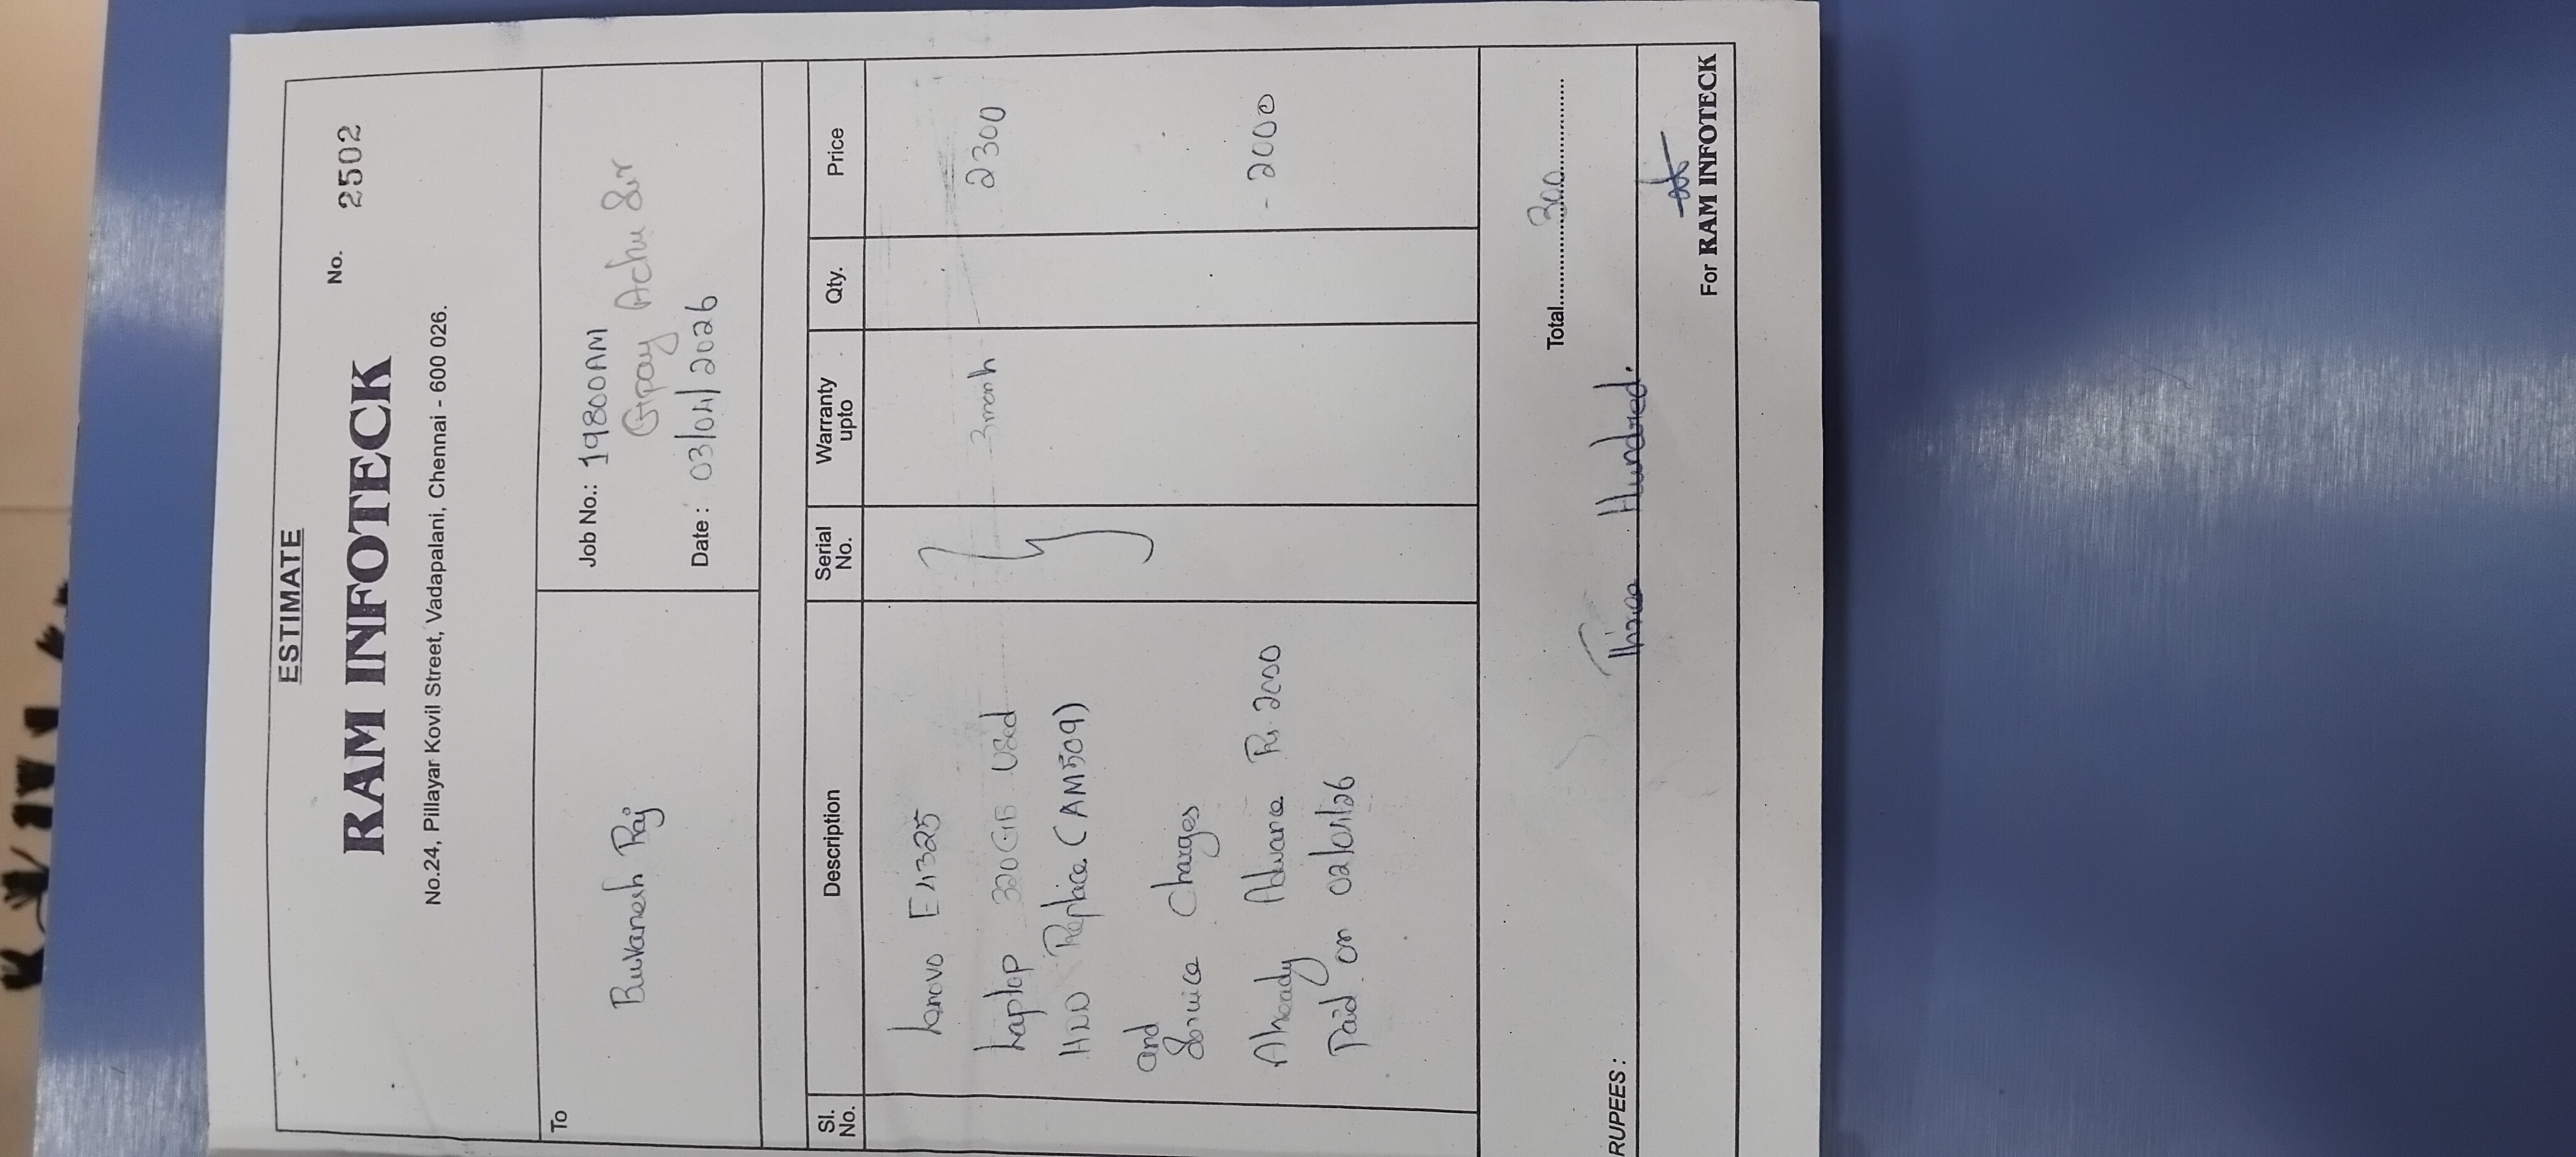 ESTIMATE
RAM INFOTECK
No. 2502
No.24, Pillayar Kovil Street, Vadapalani, Chennai - 600 026.
To
Buvanesh Raj
Job No.: 19800AM
Gpay Achu Sir
Date : 03/04/2026
Sl. No. Description Serial No. Warranty upto Qty. Price
Lenovo E4325
Laptop 320GB Used 3month 2300
HDD Replace (AM509)
and
Service Charges
Already Advance Rs 2000 - 2000
Paid on 02/01/26
Total 300
RUPEES : Three Hundred.
For RAM INFOTECK